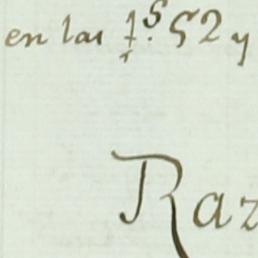 en las f.s 52 y
Raz